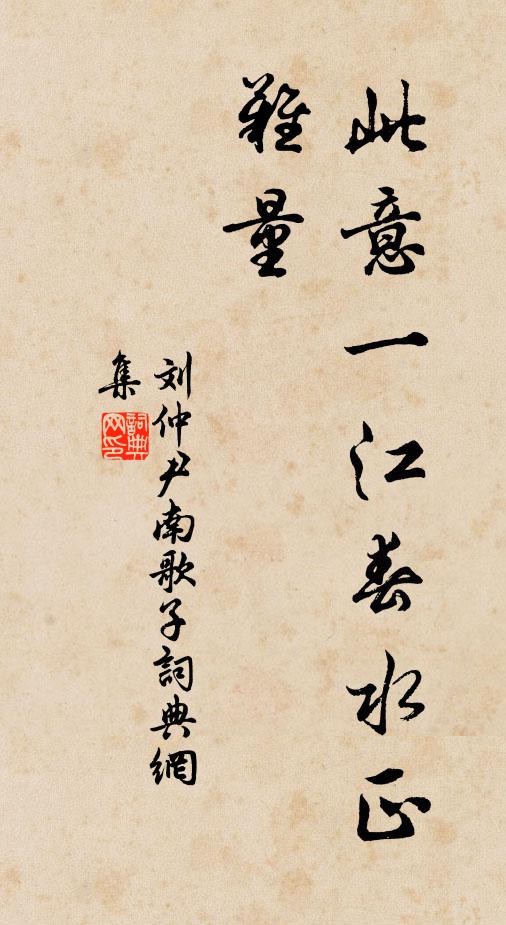 此意一江春水正
難量
刘仲尹南歌子詞典網
集
詞典
网印